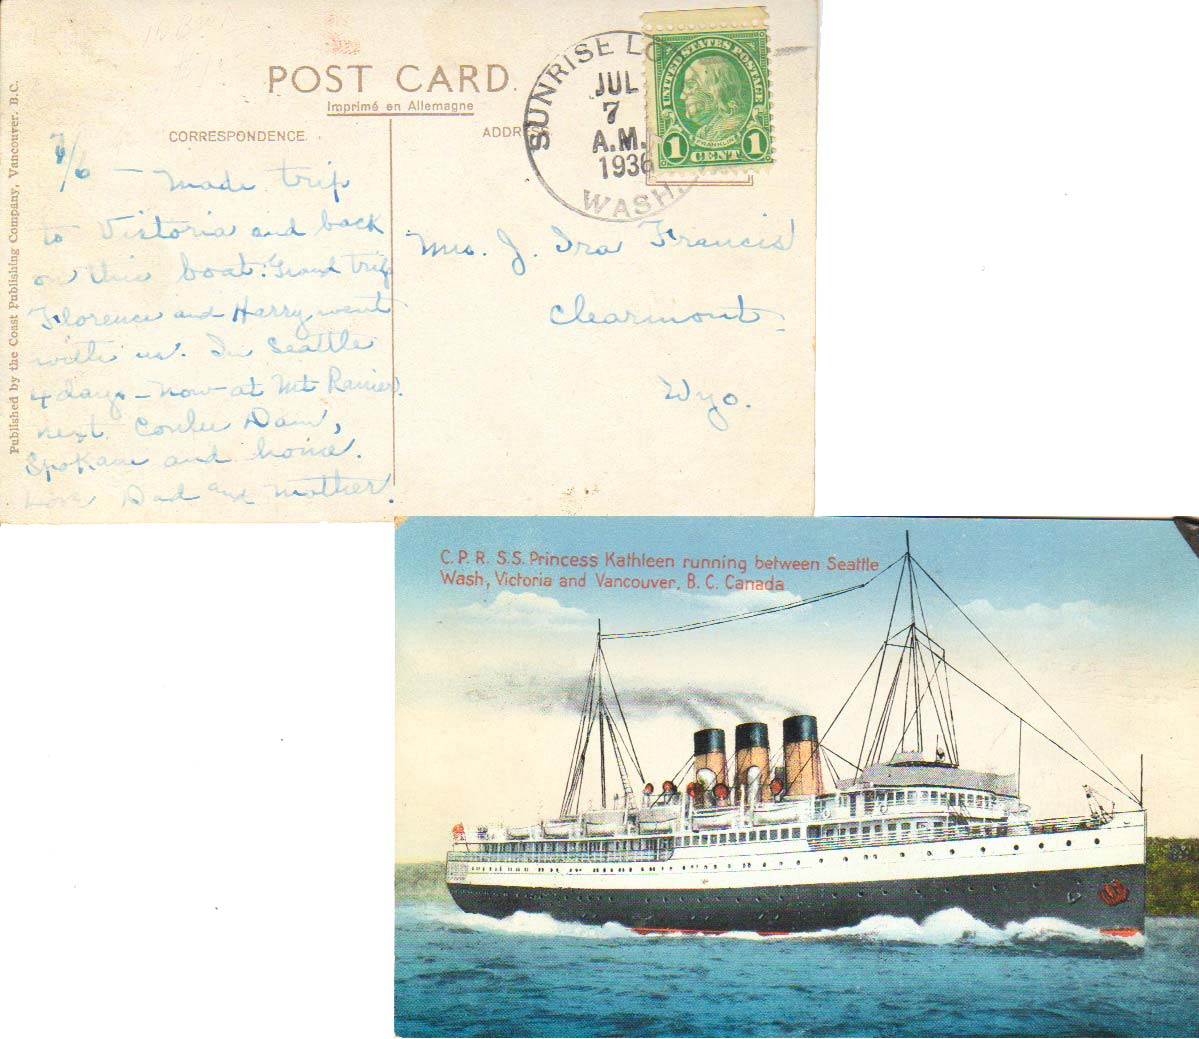 POST CARD.
Imprimé en Allemagne
CORRESPONDENCE.
ADDRESS.
Published by the Coast Publishing Company, Vancouver, B.C.
SUNRISE LO
JUL
7
A.M.
1936
WASH.
UNITED STATES POSTAGE
FRANKLIN
1 CENT 1
7/6 – Made trip
to Victoria and back
on this boat. Grand trip
Florence and Harry went
with us. In Seattle
4 days – now at Mt Ranier.
next Coulee Dam,
Spokane and home.
Love Dad and Mother.
Mrs. J. Ira Francis
Clearmont
Wyo.
C. P. R. S.S. Princess Kathleen running between Seattle
Wash, Victoria and Vancouver, B. C. Canada